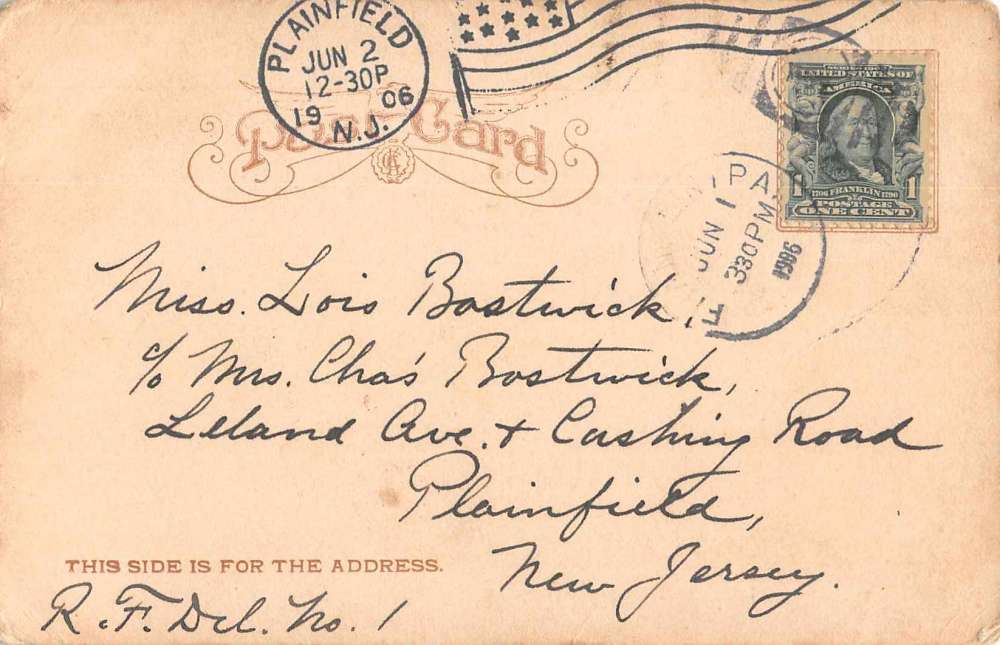 PLAINFIELD
JUN 2
12-30P
1906
N.J.
Post Card
SERIES 1902
UNITED STATES OF
AMERICA
1706 FRANKLIN 1790
1 1
POSTAGE
ONE CENT
PA.
JUN 1
330PM
1906
Miss. Lois Bostwick,
c/o Mrs. Cha's Bostwick,
Leland Ave. + Cushing Road
Plainfield,
New Jersey.
THIS SIDE IS FOR THE ADDRESS.
R.F. Del. No. 1